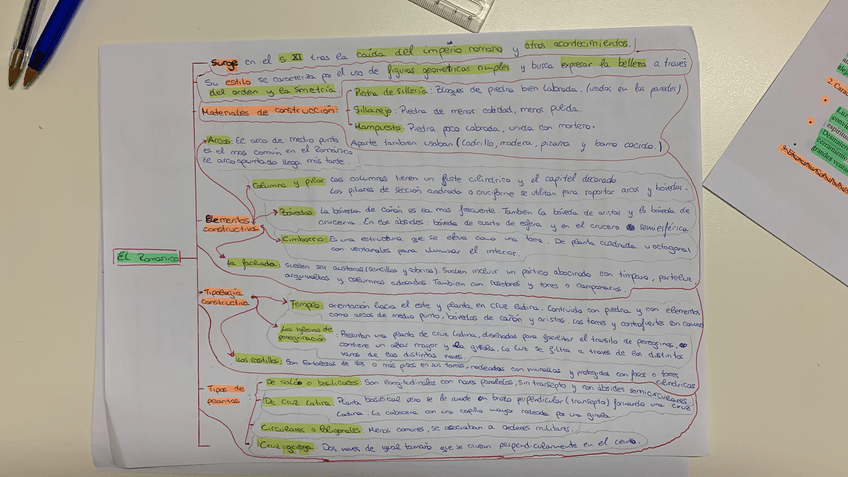 Surge en el s XI tras la caída del imperio romano y otros acontecimientos.
Su estilo se caracteriza por el uso de figuras geométricas simples y busca expresar la belleza a través
del orden y la simetría.
Materiales de construcción:
Piedra de Sillería: Bloques de piedra bien labrada. (usados en las paredes)
Sillarejo: Piedra de menos calidad, menos pulida.
Mampuesto: Piedra poco labrada, unida con mortero.
Aparte también usaban (ladrillo, madera, pizarra y barro cocido.)
Arcos: El arco de medio punto
es el más común en el Románico
El arco apuntado llega más tarde.
Columna y pilar: Las columnas tienen un fuste cilíndrico y el capitel decorado
Los pilares de sección cuadrada o cruciforme se utilizan para soportar arcos y bóvedas.
Elementos
constructivos
Bóvedas: La bóveda de cañón es la más frecuente. También la bóveda de arista y la bóveda de
crucería. En los ábsides: bóveda de cuarto de esfera y en el crucero semiesférica.
Cimborrio: Es una estructura que se eleva como una torre. De planta cuadrada u octogonal
con ventanales para iluminar el interior.
El Románico
La fachada: Suelen ser austeras (sencillas y sobrias). Suelen incluir un pórtico abocinado con tímpano, parteluz
arquivoltas y columnas adosadas. También con rosetones y torres o campanarios.
Tipología
constructiva
Templo: orientación hacia el este y planta en cruz latina. Construida con piedra y con elementos
como arcos de medio punto, bóvedas de cañón y aristas. Las torres y contrafuertes son comunes
Las iglesias de
peregrinación
: Presentan una planta de cruz latina, diseñadas para facilitar el tránsito de peregrinos,
contiene un altar mayor y la girola. La luz se filtra a través de los distintos
vanos de las distintas naves.
Los castillos: Son fortalezas de dos o más pisos en sus torres, rodeadas con murallas y protegidas con fosos o torres
cilíndricas
Tipos de
plantas
De salón o basilicales: Son longitudinales con naves paralelas, sin transepto y con ábsides semicirculares.
De cruz latina: Planta basilical pero se le añade un brazo perpendicular (transepto) formando una cruz
latina. La cabecera con una capilla mayor rodeada por una girola.
Circulares o poligonales: Menos comunes, se asociaban a órdenes militares.
Cruz griega: Dos naves de igual tamaño que se cruzan perpendicularmente en el centro.